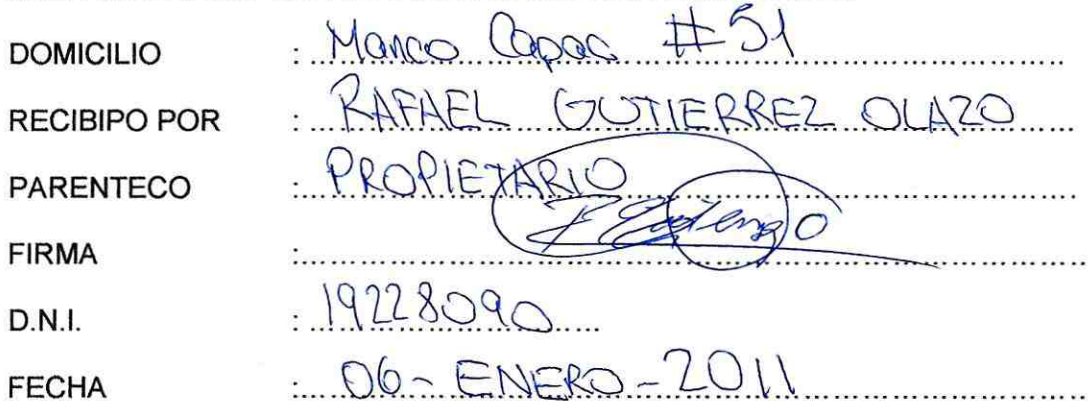 DOMICILIO : Manco Capac #51
RECIBIPO POR : RAFAEL GUTIERREZ OLAZO
PARENTECO : PROPIETARIO
FIRMA :
D.N.I. : 19228090
FECHA : 06-ENERO-2011